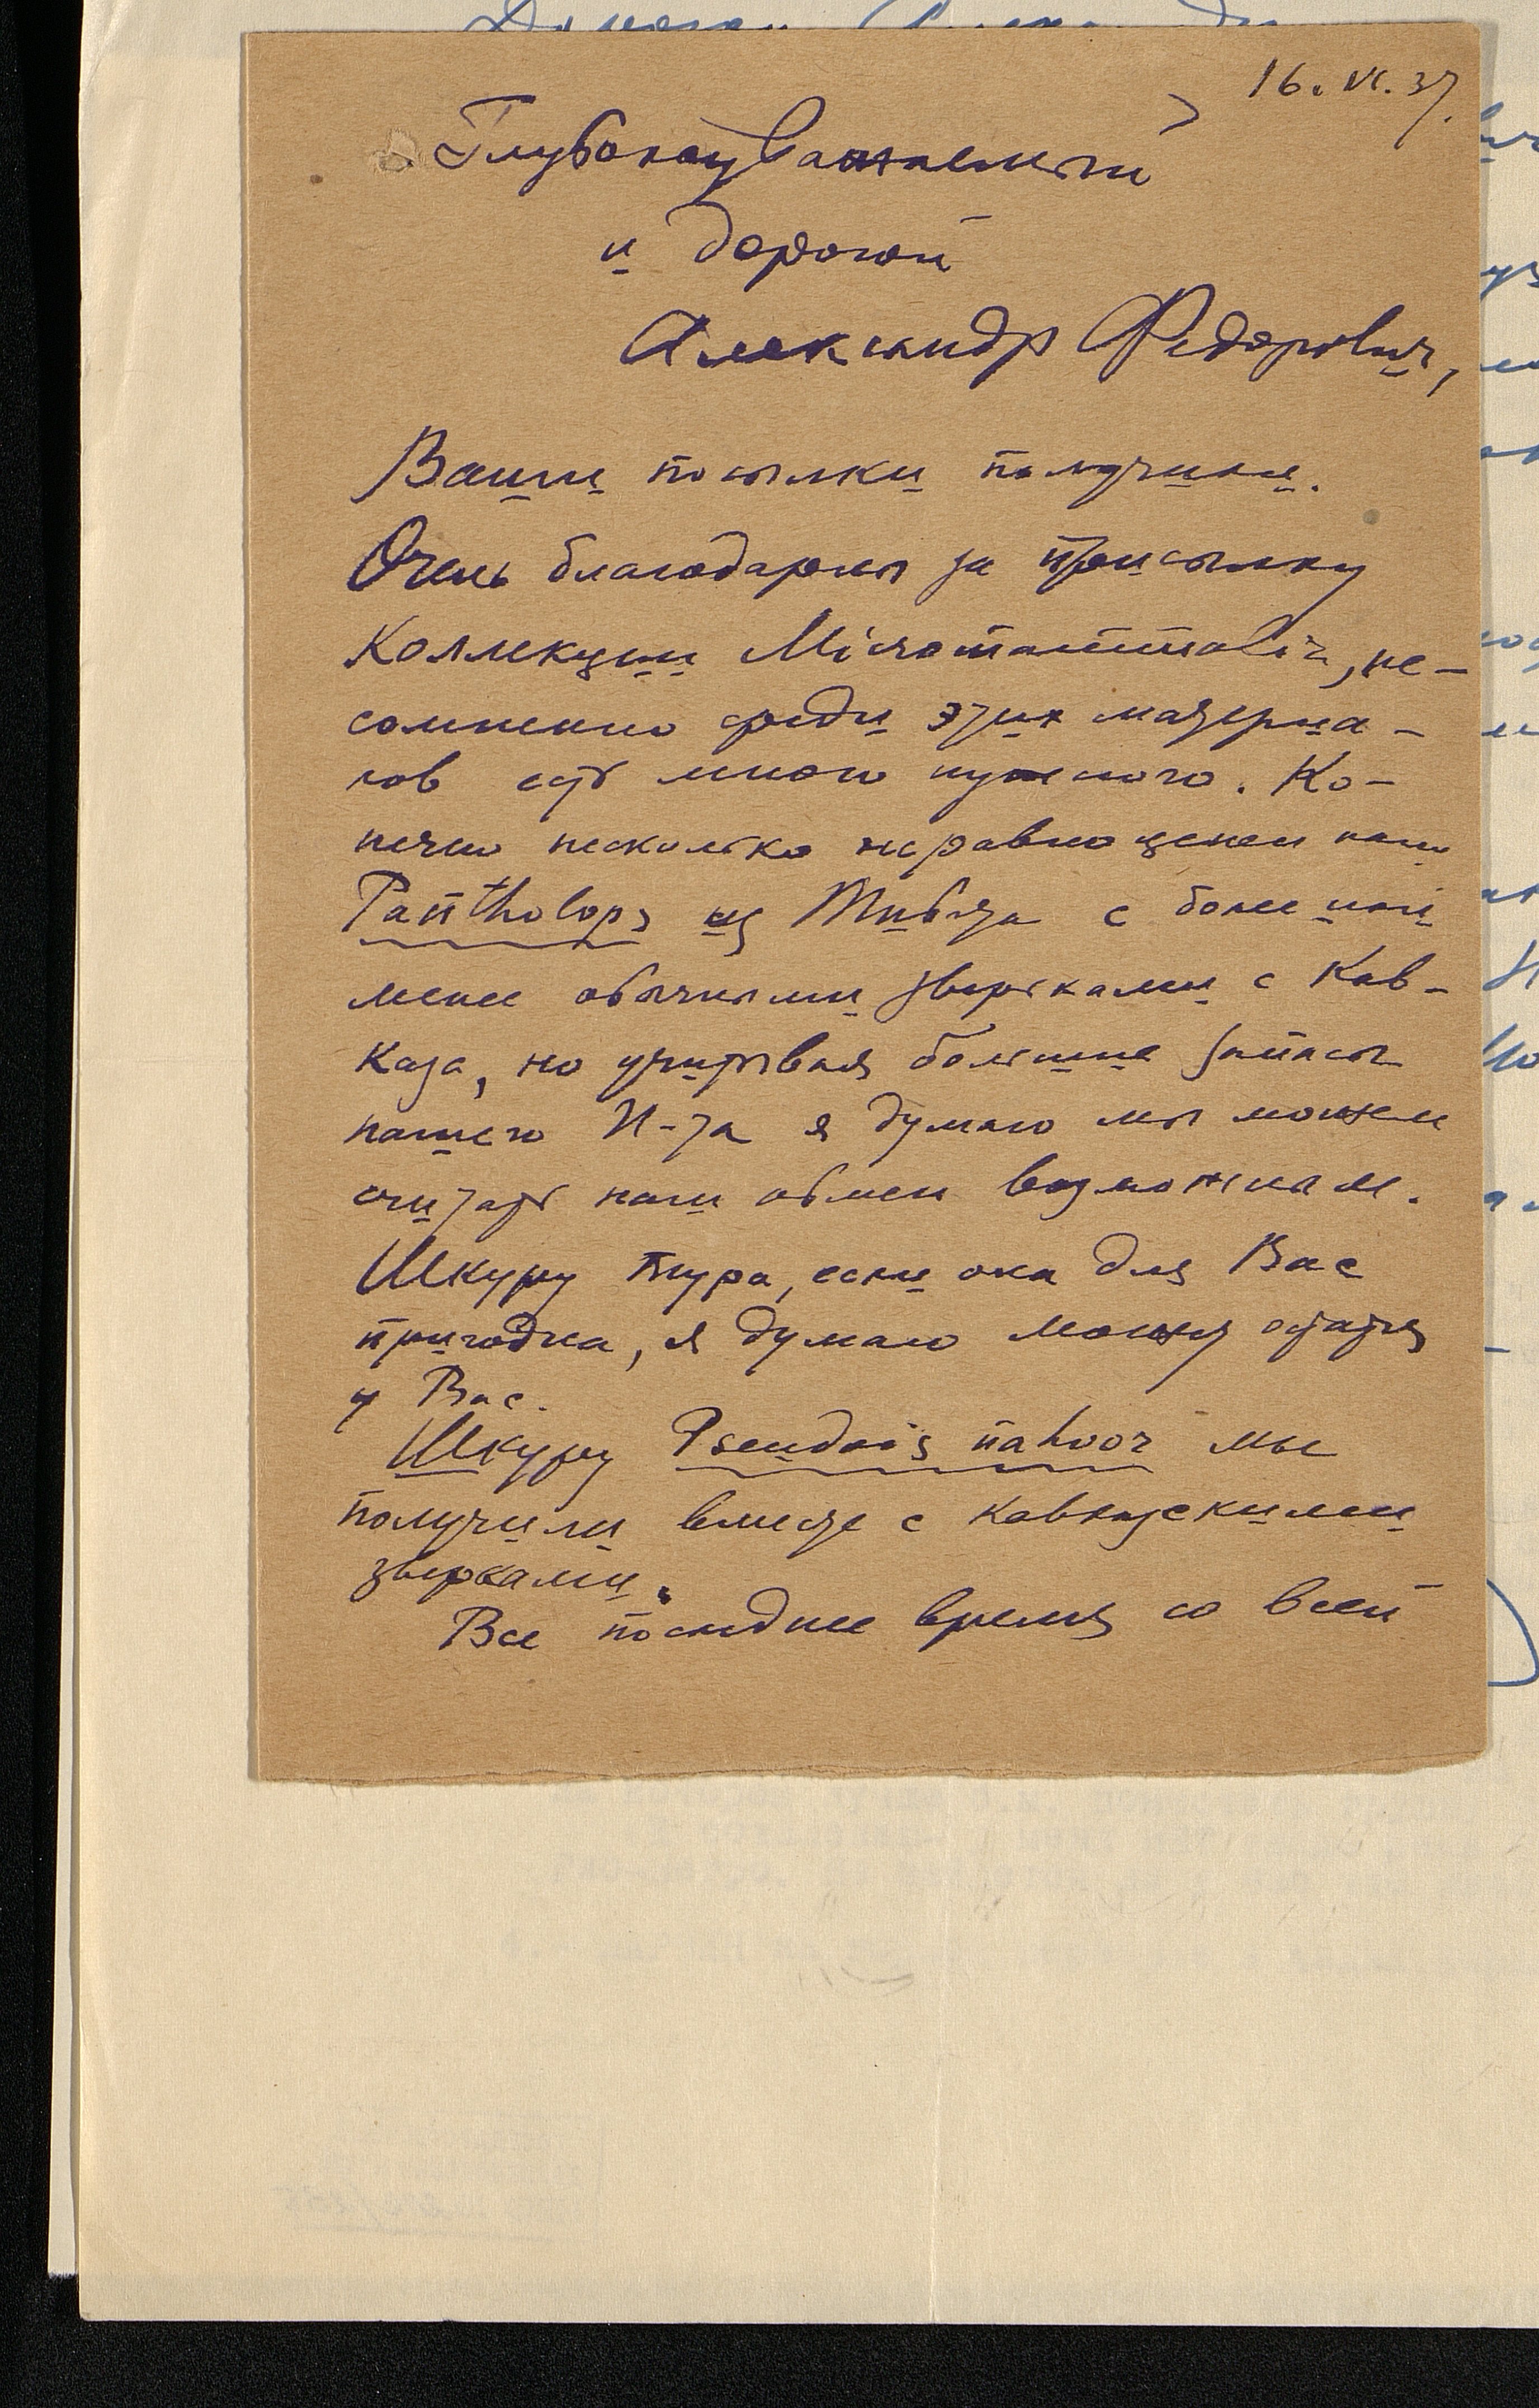 16. VI. 37.
Глубокоуважаемый
и дорогой
Александр Федорович,
Ваши посылки получили.
Очень благодарны за присылку
коллекции Micromammalia, не-
сомненно среди этих материа-
лов есть много нужного. Ко-
нечно несколько неравноценен наш
Pantholops из Тибета с более или
менее обычными зверьками с Кав-
каза, но учитывая большие запасы
нашего И-та я думаю мы можем
считать наш обмен возможным.
Шкуру тура, если она для Вас
пригодна, я думаю может остаться
у Вас.
Шкуру Pseudois nahoor мы
получили вместе с кавказскими
зверками.
Все последнее время со всей